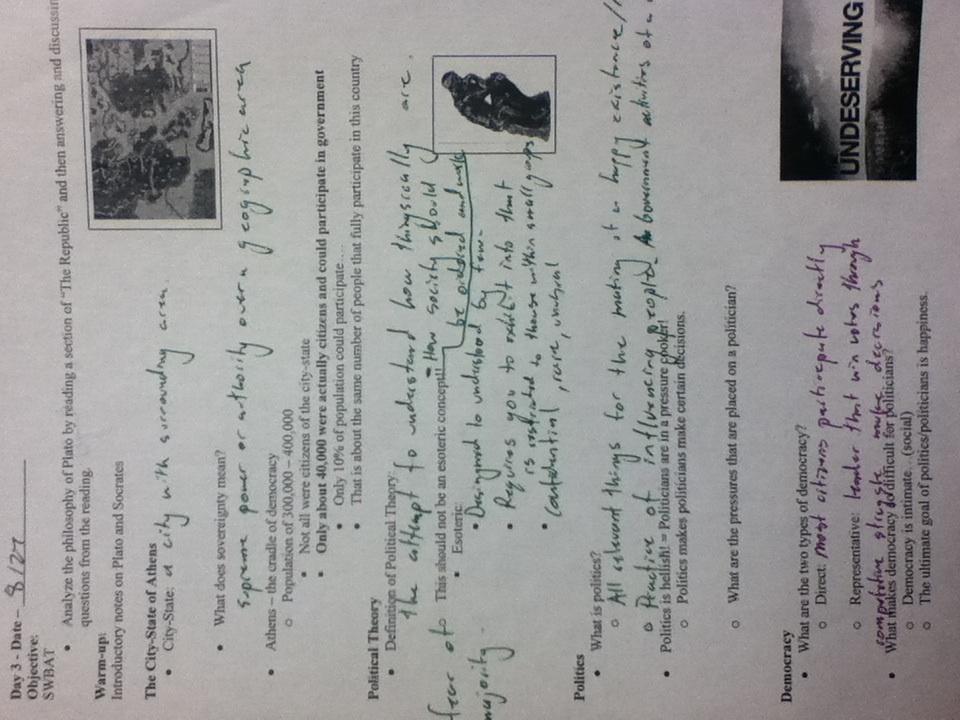 Day 3 - Date – 8/27
Objective:
SWBAT
• Analyze the philosophy of Plato by reading a section of “The Republic” and then answering and discussin
questions from the reading.
Warm-up:
Introductory notes on Plato and Socrates
The City-State of Athens
• City-State: a city with surrounding area.
• What does sovereignty mean?
Supreme power or authority over a geographic area
• Athens – the cradle of democracy
o Population of 300,000 – 400,000
▪ Not all were citizens of the city-state
▪ Only about 40,000 were actually citizens and could participate in government
• Only 10% of population could participate….
• That is about the same number of people that fully participate in this country
Political Theory
• Definition of Political Theory:
the attempt to understand how things really are.
- How society should
fear of o This should not be an esoteric concept!! be ordered and work
majority. ▪ Esoteric:
• Designed to understood by few.
• Requires you to exhibit into that
is restricted to those within small groups
• Confidential, rare, unusual
Politics
• What is politics?
o All relevant things for the making of a happy existence/
o Practice of influencing people. Government activities of a
• Politics is hellish! = Politicians are in a pressure cooker!
o Politics makes politicians make certain decisions.
o What are the pressures that are placed on a politician?
Democracy
• What are the two types of democracy?
o Direct: most citizens participate directly
UNDESERVING
o Representative: leader that win votes through
struggle make decisions
• What makes democracy do difficult for politicians?
o Democracy is intimate…(social)
o The ultimate goal of politics/politicians is happiness.